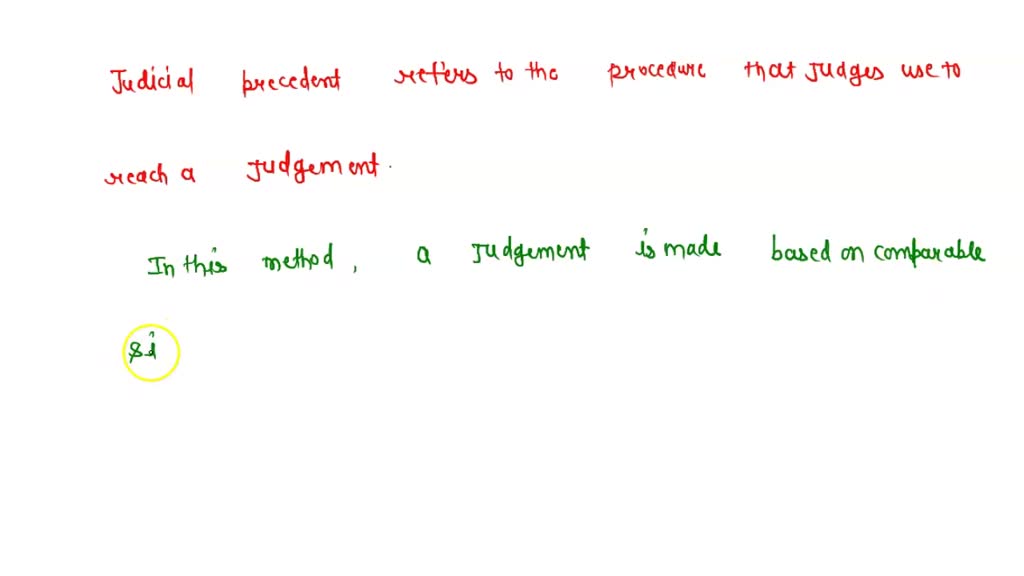 Judicial precedent refers to the procedure that Judges use to
reach a Judgement.
In this method, a Judgement is made based on comparable
si